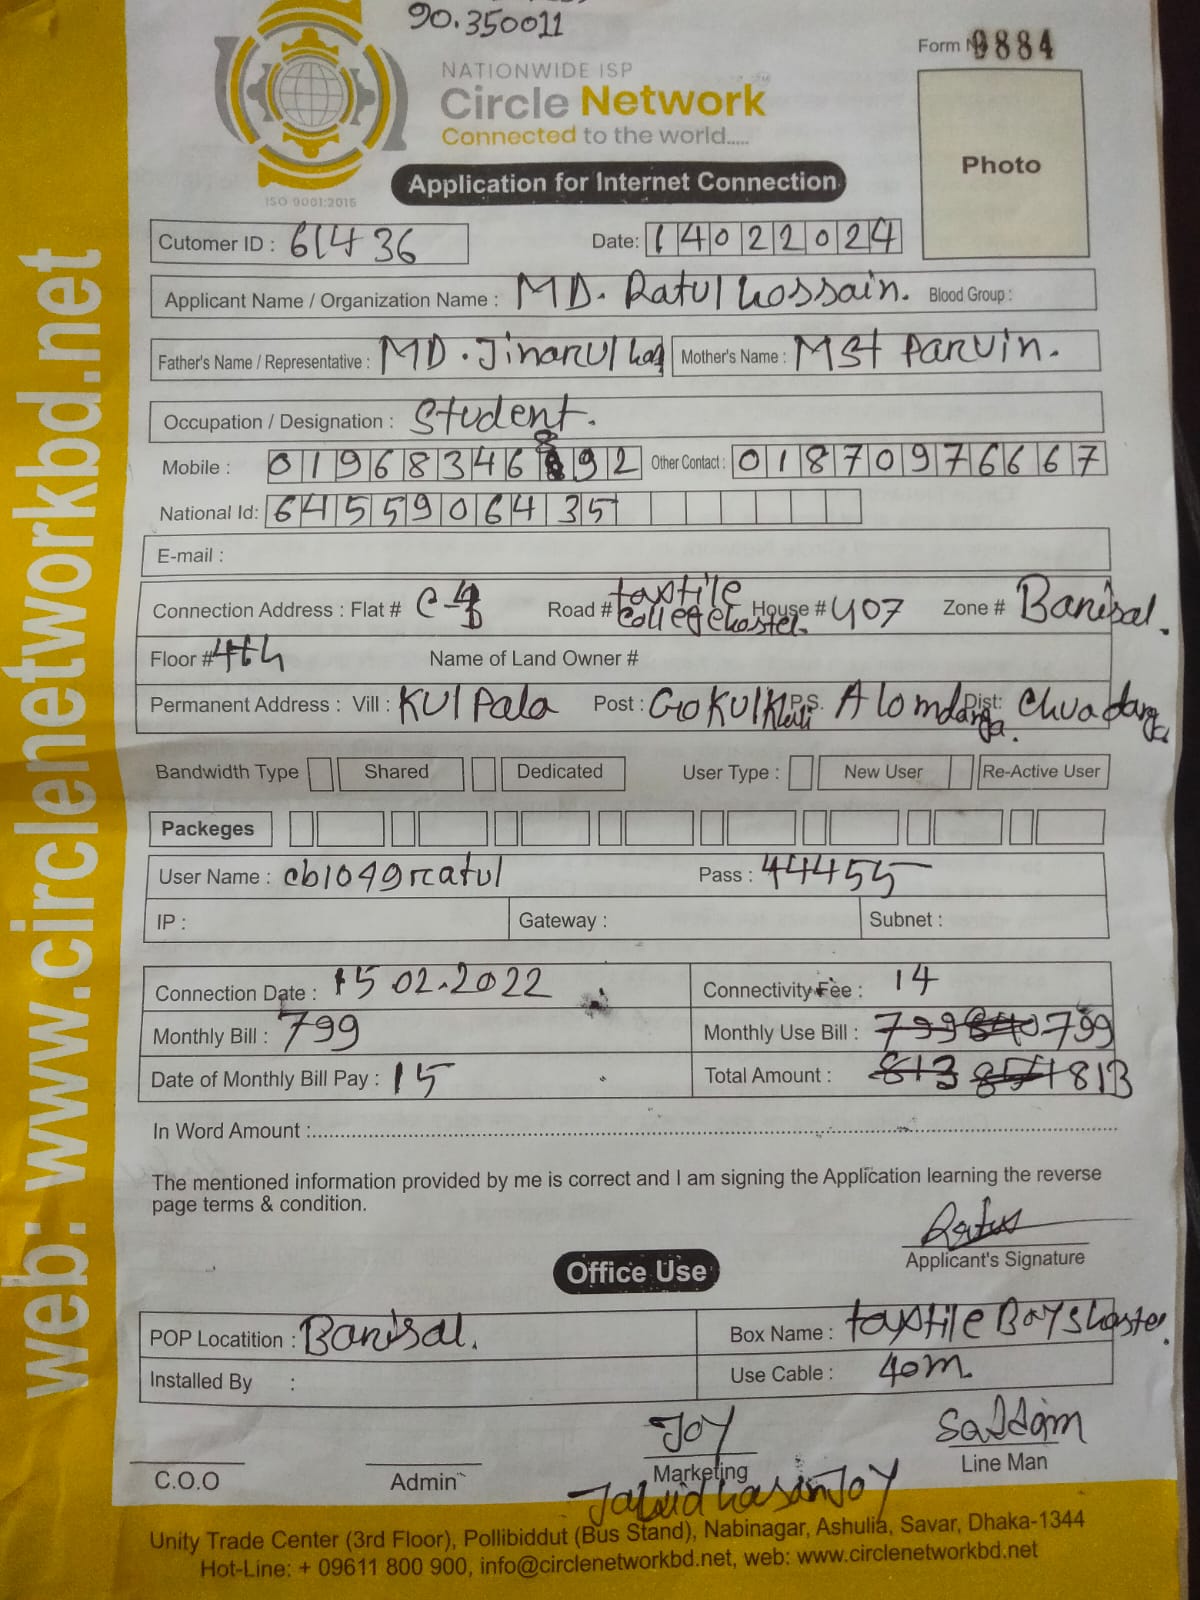 90.350011
Form No 9884
NATIONWIDE ISP
Circle Network
Connected to the world.....
ISO 9001:2015
Photo
Application for Internet Connection
Cutomer ID : 61436 Date: 14022024
Applicant Name / Organization Name : MD. Ratul hossain. Blood Group :
Father's Name / Representative : MD. Jinarul Mother's Name : MSt Parvin.
Occupation / Designation : Student.
Mobile : 01968346892 Other Contact : 01870976667
National Id: 6455906435
E-mail :
Connection Address : Flat # Road # taxtile College hostel. House # 407 Zone # Barisal.
Floor # 4th Name of Land Owner #
Permanent Address : Vill : KUlPala Post : GOKUlKhali P.S. Alomdanga. Dist: Chuadanga
Bandwidth Type Shared Dedicated User Type : New User Re-Active User
Packeges
User Name : cb1049ratul Pass : 44455
IP : Gateway : Subnet :
Connection Date : 15 02.2022 Connectivity Fee : 14
Monthly Bill : 799 Monthly Use Bill : 799 840 799
Date of Monthly Bill Pay : 15 Total Amount : 813 854 813
In Word Amount :
The mentioned information provided by me is correct and I am signing the Application learning the reverse
page terms & condition.
Ratul
Applicant's Signature
Office Use
POP Locatition : Barisal. Box Name : taxtile Boys hostel.
Installed By : Use Cable : 40m.
JOY Saddam
C.O.O Admin Marketing Line Man
Jahid hasan JOY
Unity Trade Center (3rd Floor), Pollibiddut (Bus Stand), Nabinagar, Ashulia, Savar, Dhaka-1344
Hot-Line: + 09611 800 900, info@circlenetworkbd.net, web: www.circlenetworkbd.net
web: www.circlenetworkbd.net